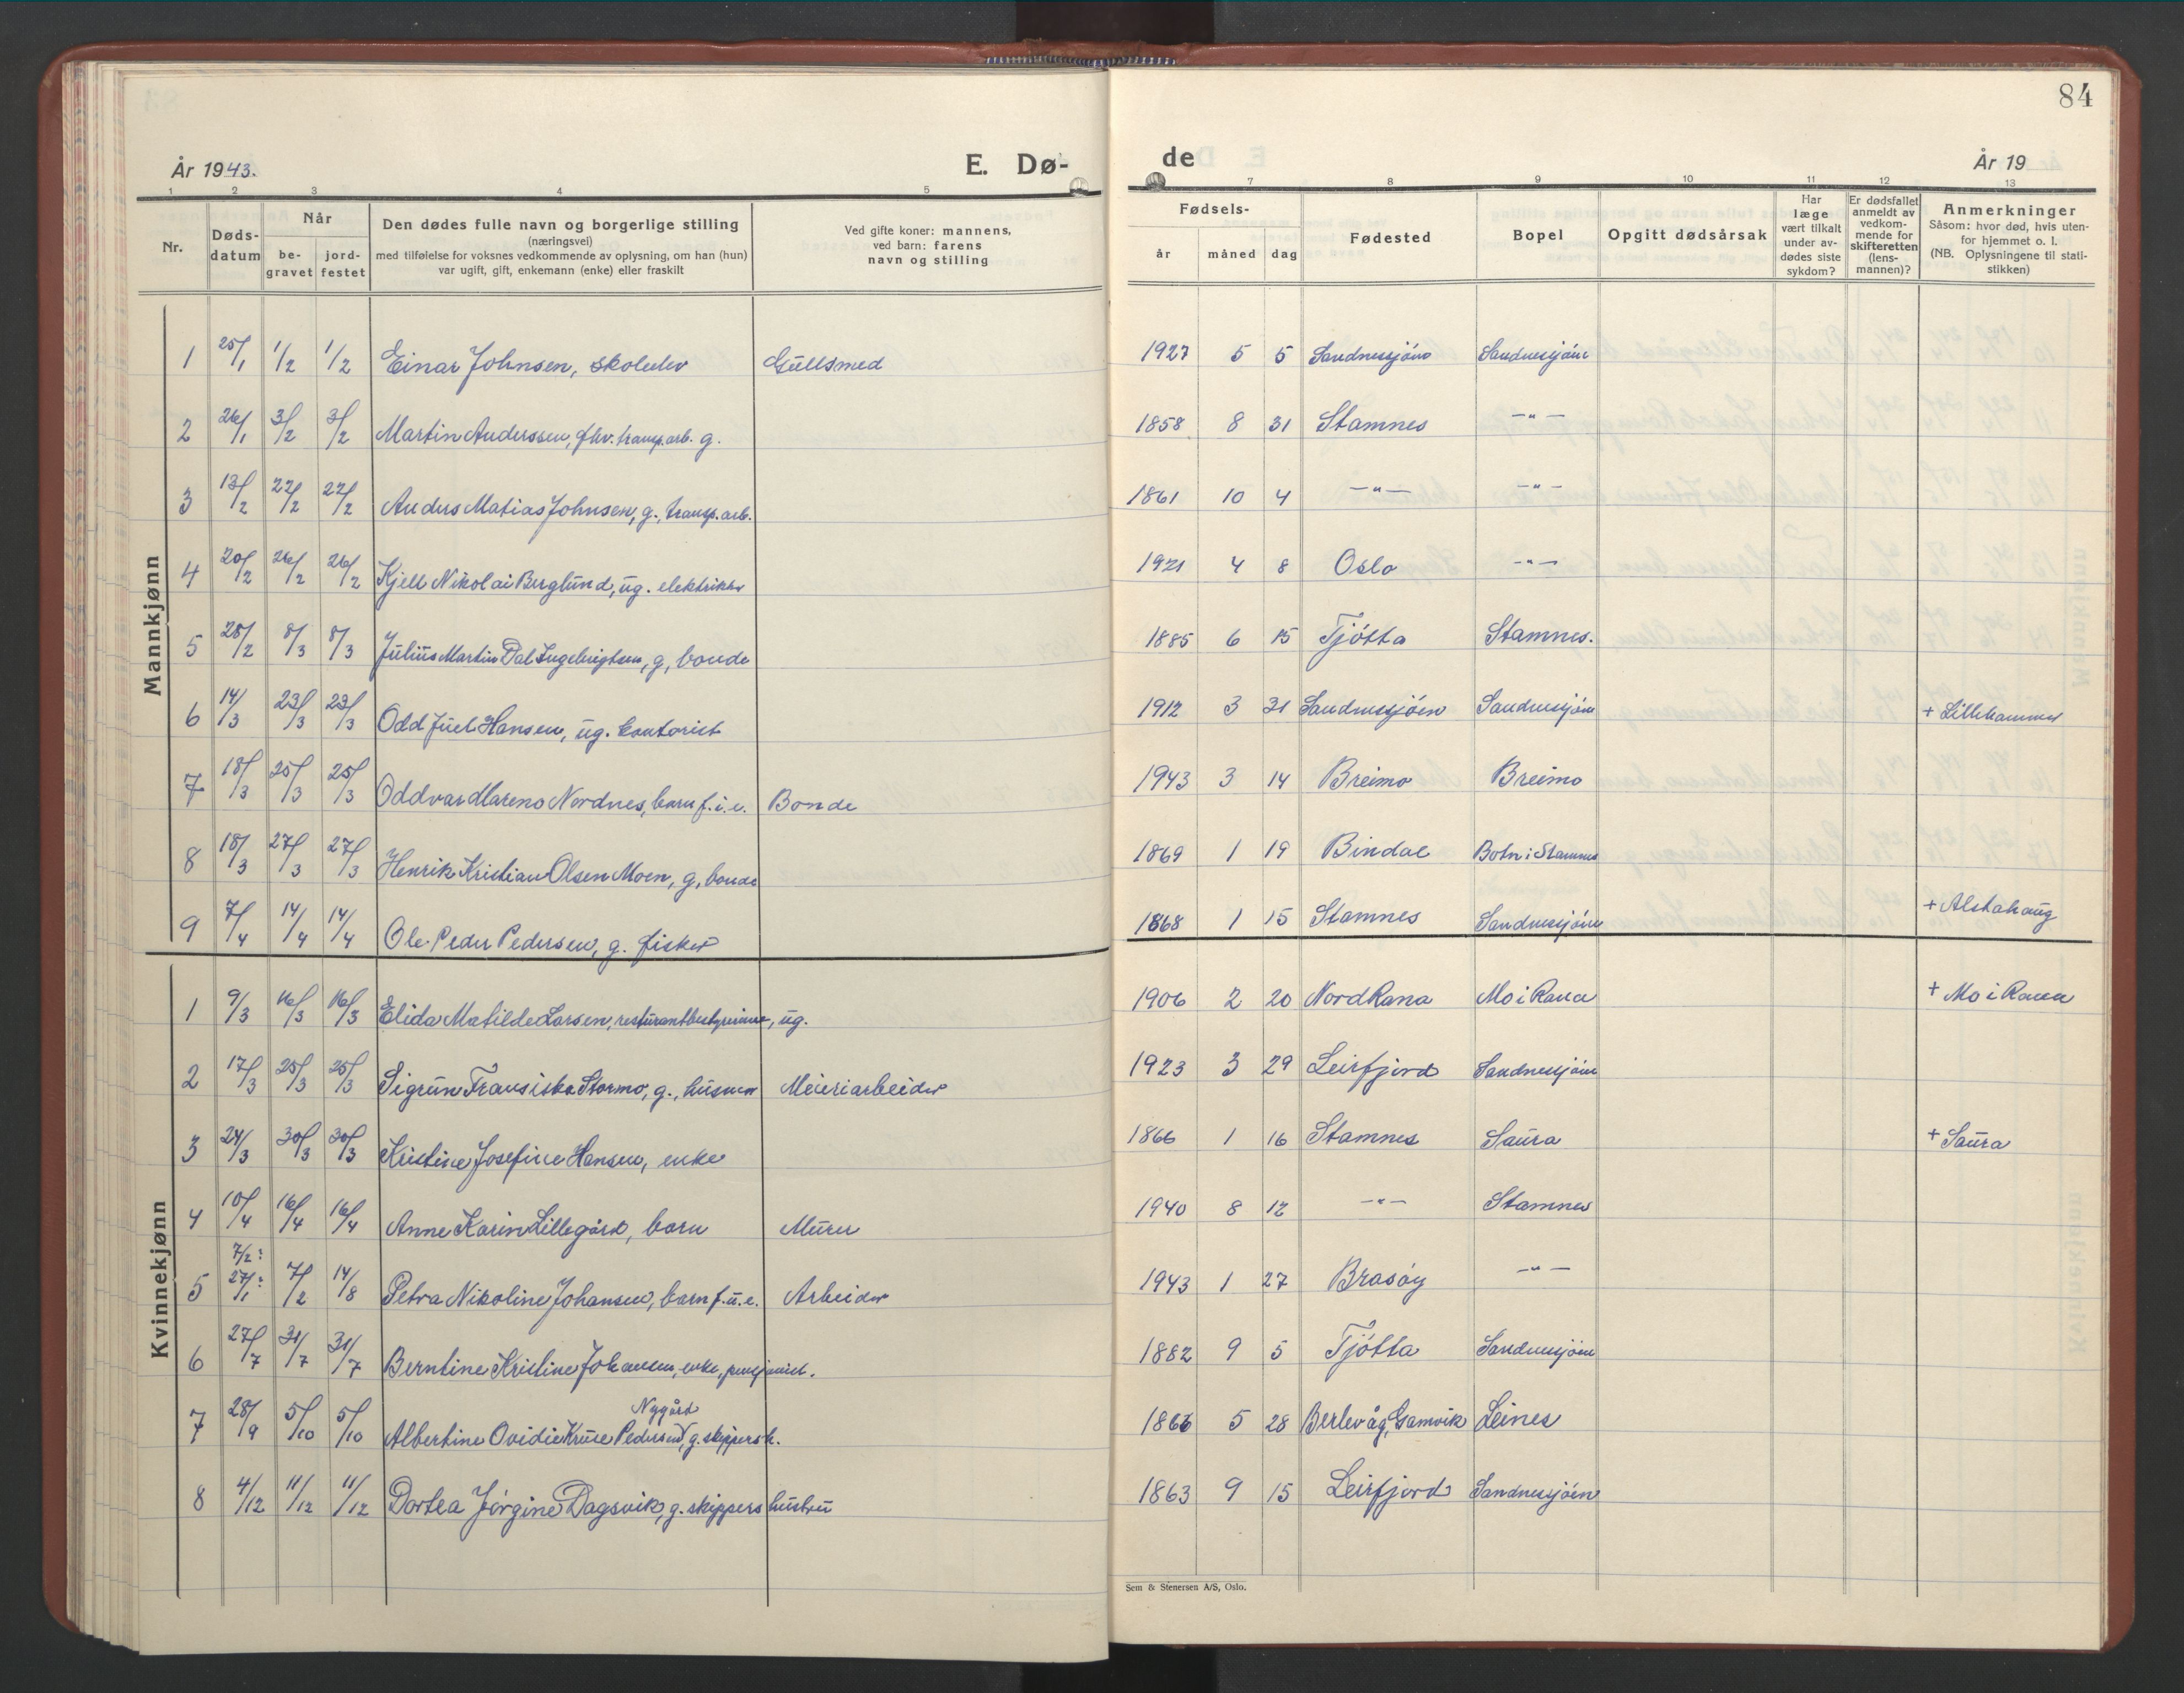 84
År 1943.
E. Dø-
de
År 19
1 2 3 4 5 7 8 9 10 11 12 13
Nr.
Døds-
datum
Når
be-
gravet
jord-
festet
Den dødes fulle navn og borgerlige stilling
(næringsvei)
med tilføielse for voksnes vedkommende av oplysning, om han (hun)
var ugift, gift, enkemann (enke) eller fraskilt
Ved gifte koner: mannens,
ved barn: farens
navn og stilling
Fødsels-
år måned dag
Fødested
Bopel
Opgitt dødsårsak
Har
læge
vært tilkalt
under av-
dødes siste
sykdom?
Er dødsfallet
anmeldt av
vedkom-
mende for
skifteretten
(lens-
mannen)?
Anmerkninger
Såsom: hvor død, hvis uten-
for hjemmet o. l.
(NB. Oplysningene til stati-
stikken)
Mannkjønn
1 25/1 1/2 1/2 Einar Johnsen, skoleelev Gullsmed 1927 5 5 Sandnessjöen Sandnessjöen
2 26/1 3/2 3/2 Martin Anderssen, fhv. transp.arb. g. 1858 8 31 Stamnes —"—
3 13/2 22/2 22/2 Anders Matias Johnsen, g., transp. arb. 1861 10 4 —"— —"—
4 20/2 26/2 26/2 Kjell Nikolai Berglund, ug. elektriker 1921 4 8 Oslo —"—
5 28/2 8/3 8/3 Julius Martin Dal Ingebrigtsen, g, bonde 1885 6 15 Tjötta Stamnes.
6 14/3 23/3 23/3 Odd Juel Hansen, ug. kontorist 1912 3 31 Sandnessjöen Sandnessjöen + Lillehammer
7 18/3 25/3 25/3 Oddvar Mareno Nordnes, barn f. i. e. Bonde 1943 3 14 Breimo Breimo
8 18/3 27/3 27/3 Henrik Kristian Olsen Moen, g, bonde 1869 1 19 Bindal Botn i Stamnes
9 7/4 14/4 14/4 Ole Peder Pedersen, g. fisker 1868 1 15 Stamnes Sandnessjöen + Alstahaug
Kvinnekjønn
1 9/3 16/3 16/3 Elida Matilde Larsen, resturantbestyrerinne, ug. 1906 2 20 Nord Rana Mo i Rana + Mo i Rana
2 17/3 25/3 25/3 Sigrun Fransiska Stormo, g., husmor Meieriarbeider 1923 3 29 Leirfjord Sandnessjöen
3 24/3 30/3 30/3 Kristine Josefine Hansen, enke 1866 1 16 Stamnes Saura + Saura
4 10/4 16/4 16/4 Anne Karin Lillegård, barn Murer 1940 8 12 —"— Stamnes
7/2:
5 27/1: 7/2 14/8 Petra Nikoline Johansen, barn f. u. e. Arbeider 1943 1 27 Brasöy —"—
6 27/7 31/7 31/7 Berntine Kristine Johansen, enke, pensjonist. 1882 9 5 Tjötta Sandnessjöen
Nygård
7 28/9 5/10 5/10 Albertine Ovidie Kruse Pedersen, g. skippersh. 1866 5 28 Berlevåg, Gamvik Leines
8 4/12 11/12 11/12 Dortea Jörgine Dagsvik, g. skippers hustru 1863 9 15 Leirfjord Sandnessjöen
Sem & Stenersen A/S, Oslo.